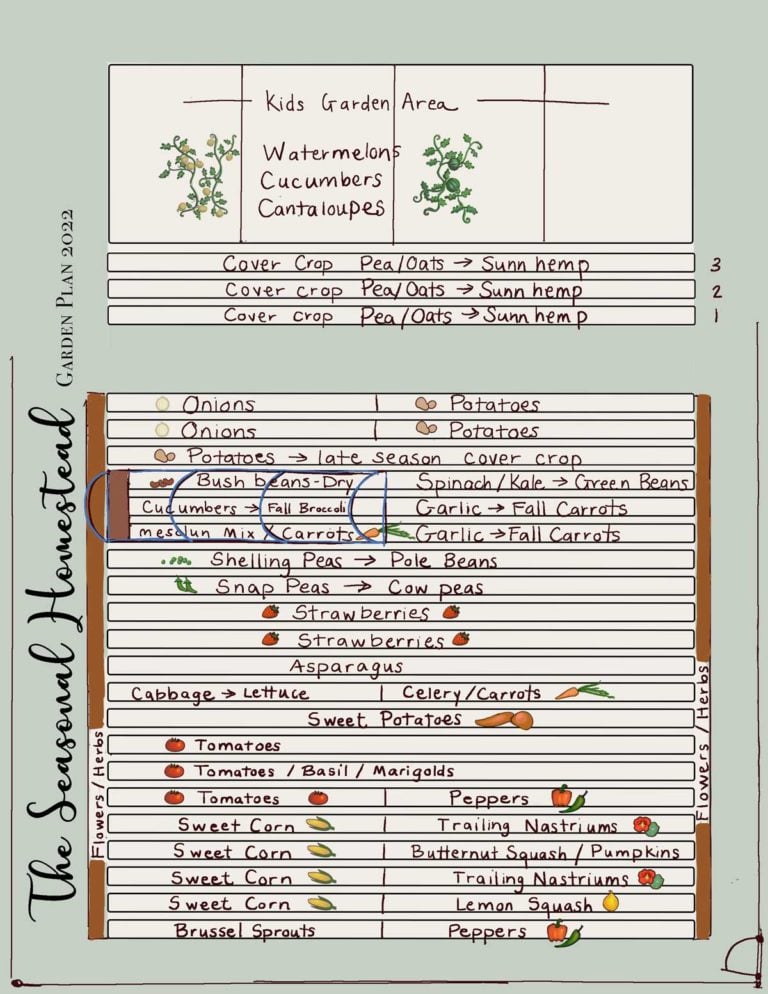 The Seasonal Homestead
Garden Plan 2022
Kids Garden Area
Watermelons
Cucumbers
Cantaloupes
Cover Crop Pea/Oats → Sunn hemp 3
Cover crop Pea/Oats → Sunn hemp 2
Cover crop Pea/Oats → Sunn hemp 1
Onions | Potatoes
Onions | Potatoes
Potatoes → late season cover crop
Bush beans-Dry Spinach/Kale → Green Beans
Cucumbers → Fall Broccoli Garlic → Fall Carrots
mesclun Mix / Carrots Garlic → Fall Carrots
Shelling Peas → Pole Beans
Snap Peas → Cow peas
Strawberries
Strawberries
Asparagus
Cabbage → Lettuce | Celery/Carrots
Sweet Potatoes
Tomatoes
Tomatoes / Basil / Marigolds
Tomatoes | Peppers
Sweet Corn | Trailing Nastriums
Sweet Corn | Butternut Squash / Pumpkins
Sweet Corn | Trailing Nastriums
Sweet Corn | Lemon Squash
Brussel Sprouts | Peppers
Flowers / Herbs
Flowers / Herbs